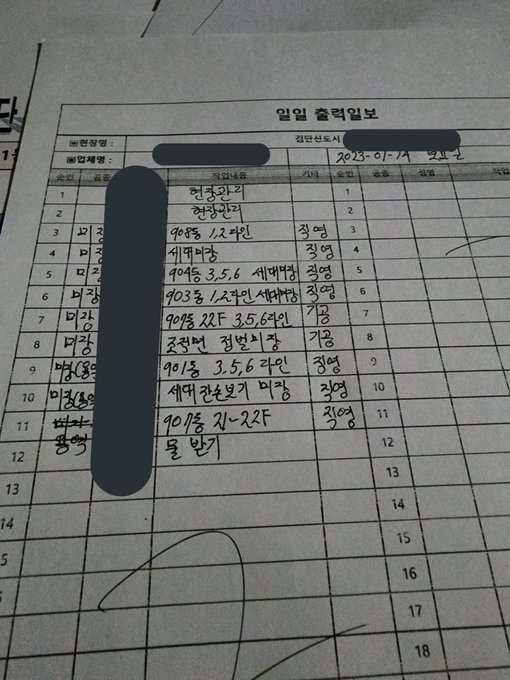 일일 출력일보
▣현장명 : 검단신도시
▣업체명 : 2023-01-14
순번 공종 작업내용 기타 순번 공종 성명 작업
1 현장관리 1
2 현장관리 2
3 미장 908동 1,2라인 직영 3
4 미장 세대미장 직영 4
5 미장 904동 3,5,6 세대미장 직영 5
6 미장 903동 1,2라인 세대미장 직영 6
7 미장 907동 22F 3,5,6라인 기공 7
8 미장 조적면 정벌미장 기공 8
9 미장(용역 901동 3,5,6 라인 직영 9
10 미장(용역 세대 잔손보기 미장 직영 10
11 907동 21~22F 직영 11
12 용역 물 받기 12
13 13
14 14
5 15
16
17
18